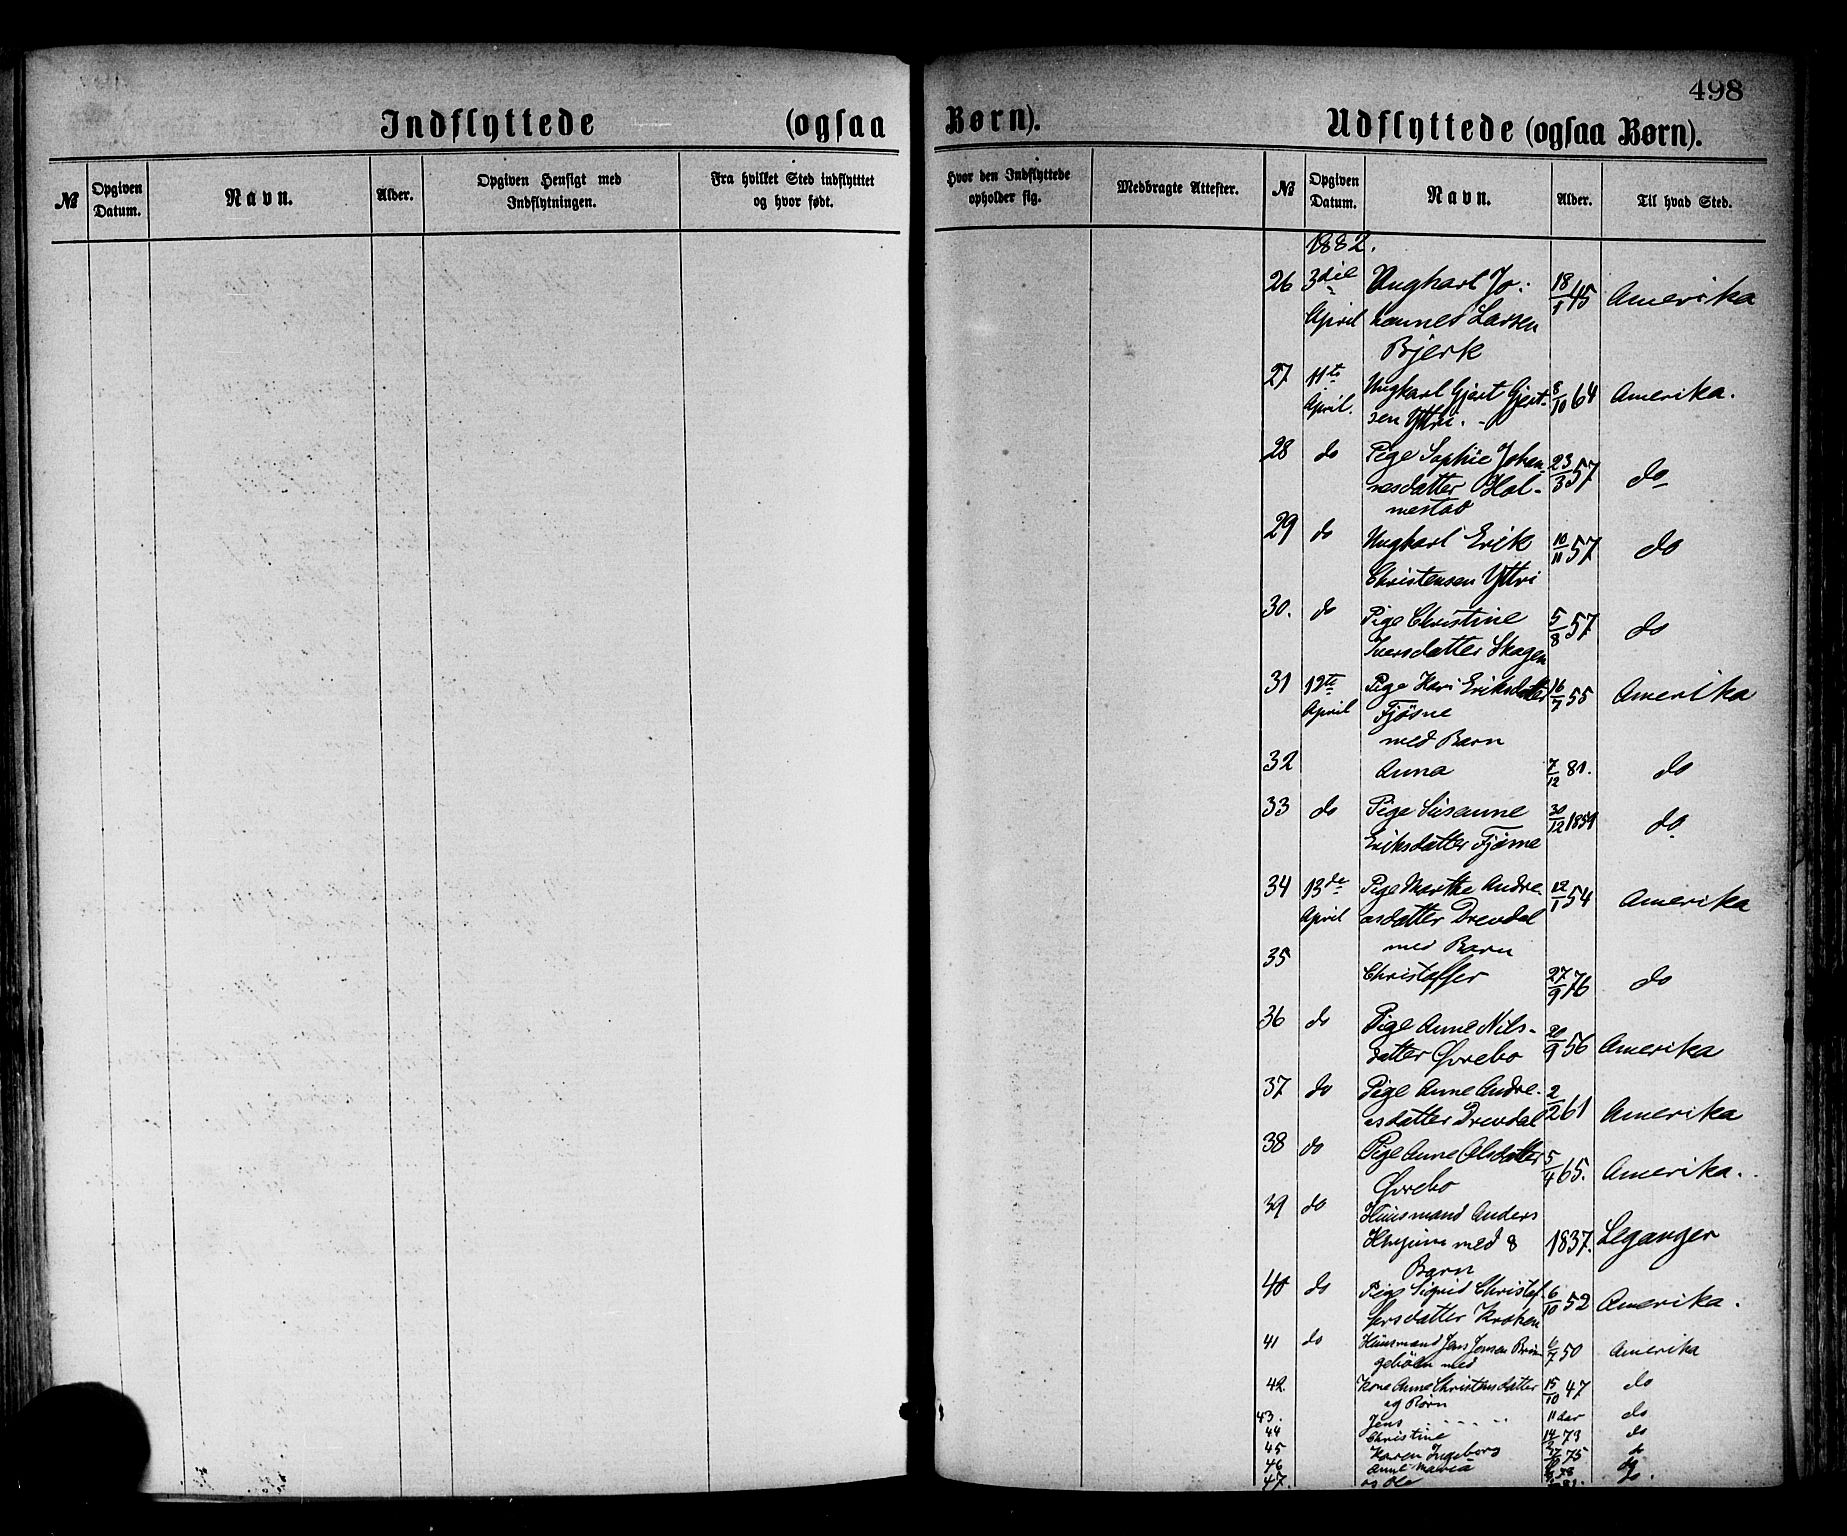 498
Indflyttede (ogsaa Børn).
Udflyttede (ogsaa Børn).
№ Opgiven Datum. Navn. Alder. Opgiven Hensigt med Indflytningen. Fra hvilket Sted indflyttet og hvor født. Hvor den Indflyttede opholder sig. Medbragte Attester. № Opgiven Datum. Navn. Alder. Til hvad Sted.
1882.
26 3die Ungkarl Jo: 18/1 45 Amerika
April hannes Larsen
Bjerk
27 11te Ungkarl Gjert Gjert- 8/10 64 Amerika.
April. sen Yttri.
28 do Pige Sophie Johan- 23/3 57 do
nesdatter Hol-
mestad
29 do Ungkarl Erik 10/11 57 do
Christensen Yttri
30. do Pige Christine 5/8 57 do
Iversdatter Skagen
31 12te Pige Kari Eriksdatter 16/7 55 Amerika
April Fjøsne
med Barn
32 Anna 7/12 81. do
33 do Pige Susanne 30/12 1859 do
Eriksdatter Fjøsne
34 13de Pige Marthe Andre- 12/1 54 Amerika
April asdatter Drevdal
med Barn
35 Christoffer 27/9 76 do
36 do Pige Anne Nils- 20/9 56 Amerika
datter Øvrebø
37 do Pige Anne Andre- 2/2 61 Amerika
asdatter Drevdal
38 do Pige Anne Olsdatter 5/4 65. Amerika.
Øvrebø
39 do Huusmand Anders
med 8 1837. Leganger
Børn
40 do Pige Sigrid Christof- 6/10 52 Amerika.
fersdatter Kroken
41 do Huusmand Jens Jensen 6/7 50 Amerika
med
42. Kone Anne Christensdatter 15/10 47 do
og Børn
43. Jens 11 Aar do
44 Christine 73 do
45 Karen Ingeborg 75 do
46 Anne Maria 78 do
47. og Ole do.